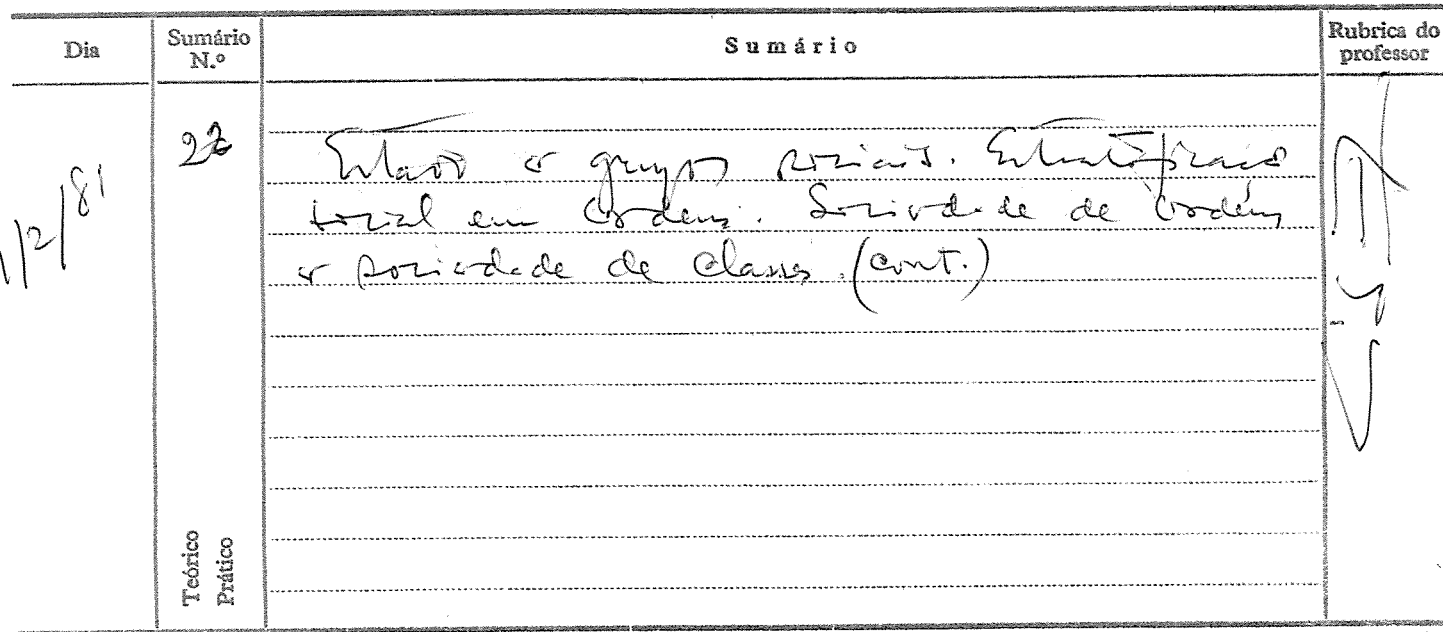 Dia
Sumário N.º
Sumário
Rubrica do professor
/2/81
Estado e grupos sociais. Estratificação
social em ordens. Sociedade de ordens
e sociedade de classes. (cont.)
Teórico
Prático